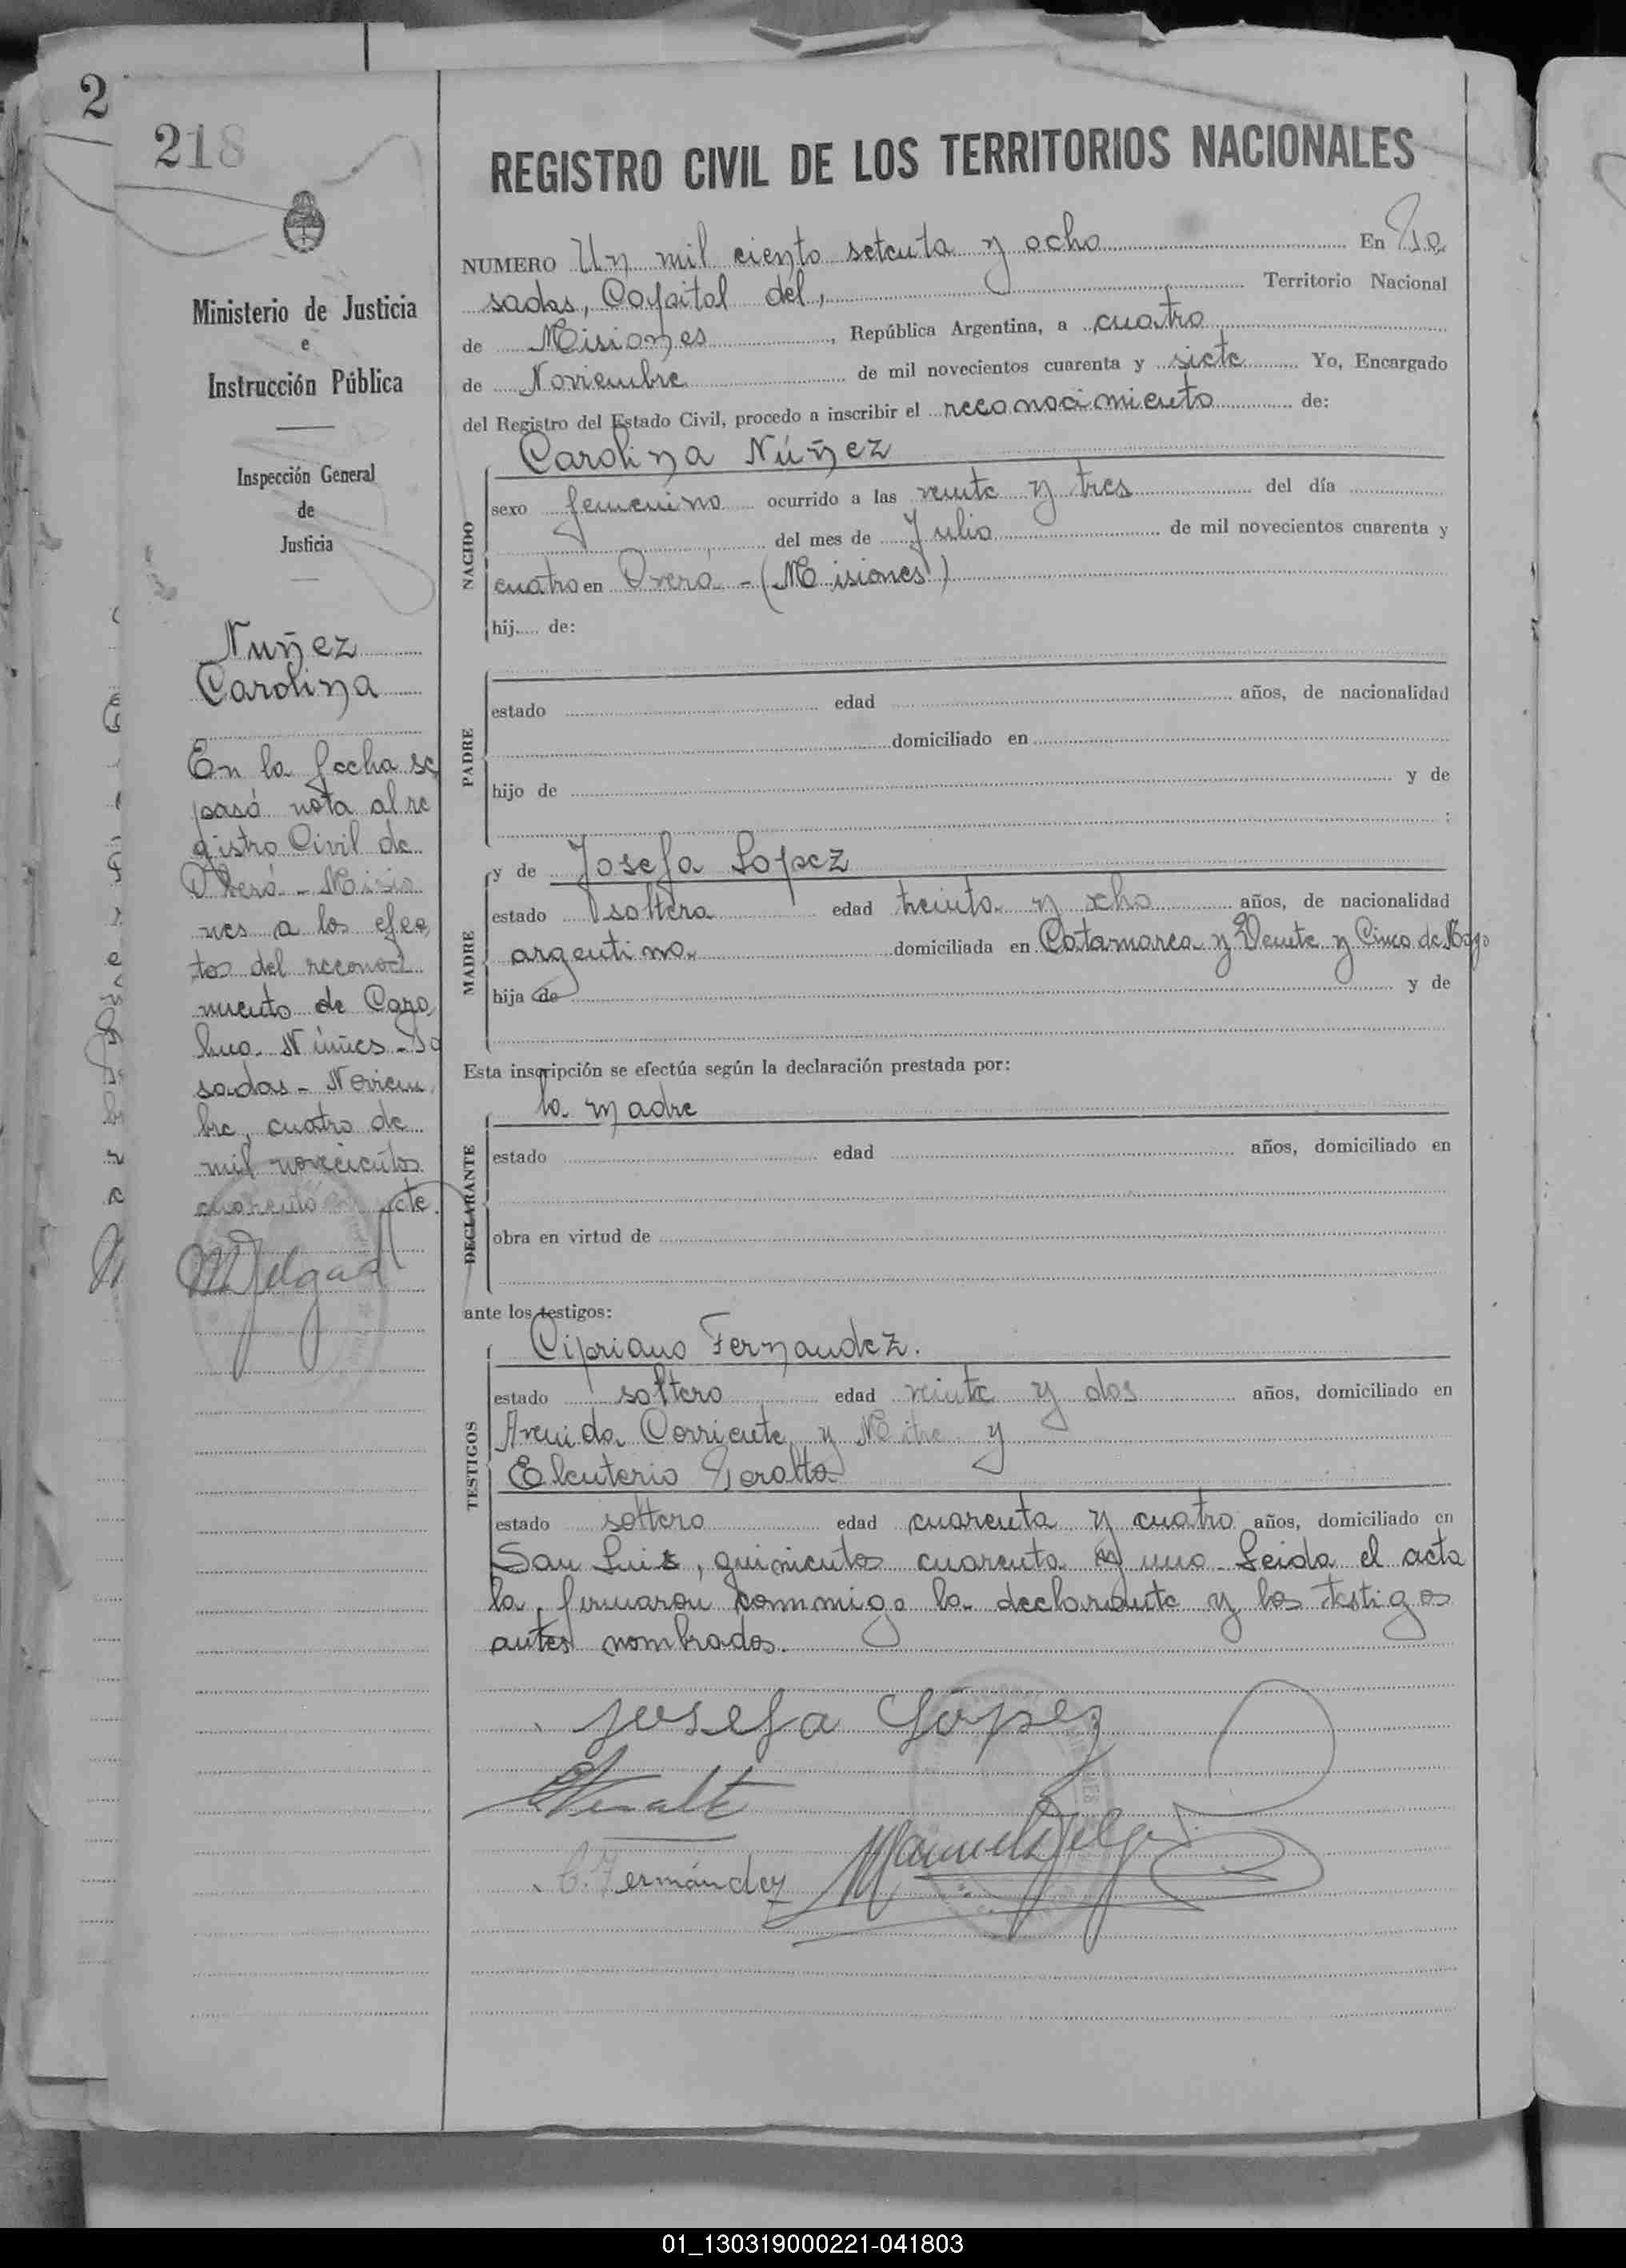 2
218
Ministerio de Justicia
e
Instrucción Pública
Inspección General
de
Justicia
Nuñez
Carolina
En la fecha se
pasó nota al re
gistro Civil de
Oberá - Misio
nes a los efec
tos del reconoci
miento de Caro
lina Núñes - Po
sadas - Noviem
bre, cuatro de
mil novecientos
cuarenta
MDelgad
REGISTRO CIVIL DE LOS TERRITORIOS NACIONALES
NUMERO Un mil ciento setenta y ocho En Po
sadas, Capital del, Territorio Nacional
de Misiones, República Argentina, a cuatro
de Noviembre de mil novecientos cuarenta y siete Yo, Encargado
del Registro del Estado Civil, procedo a inscribir el reconocimiento de:
NACIDO
Carolina Núñez
sexo femenino ocurrido a las veinte y tres del día
del mes de Julio de mil novecientos cuarenta y
cuatro en Overá - (Misiones)
hij..... de:
PADRE
estado edad años, de nacionalidad
domiciliado en
hijo de y de
;
MADRE
y de Josefa Lopez
estado soltera edad treinta y ocho años, de nacionalidad
argentina domiciliada en Catamarca y Veinte y Cinco de Mayo
hija de y de
Esta inscripción se efectúa según la declaración prestada por:
DECLARANTE
la madre
estado edad años, domiciliado en
obra en virtud de
ante los testigos:
TESTIGOS
Cipriano Fernandez.
estado soltero edad veinte y dos años, domiciliado en
Avenida Corriente y Mitre y
Eleuterio Peralta
estado soltero edad cuarenta y cuatro años, domiciliado en
San Luis, quinientos cuarenta y uno. Leida el acta
la firmaron conmmigo la declarante y los testigos
antes nombrados.
Josefa Lopez
EPeralta
C. Fernández Manuel Delgad
01_130319000221-041803